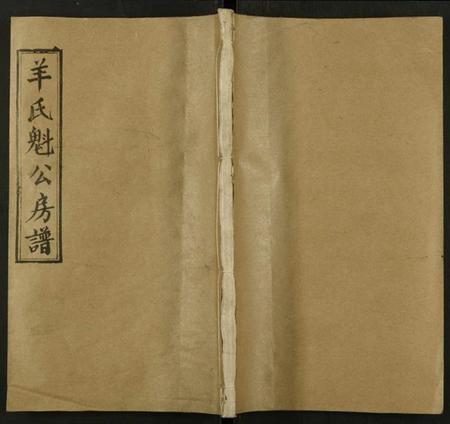 羊氏魁公房譜